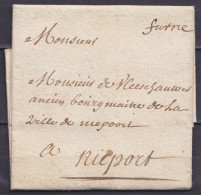 furne
Monsieur
Monsieur de Vleeschauwer
ancien bourgmaitre de la
ville de nieport
a nieport